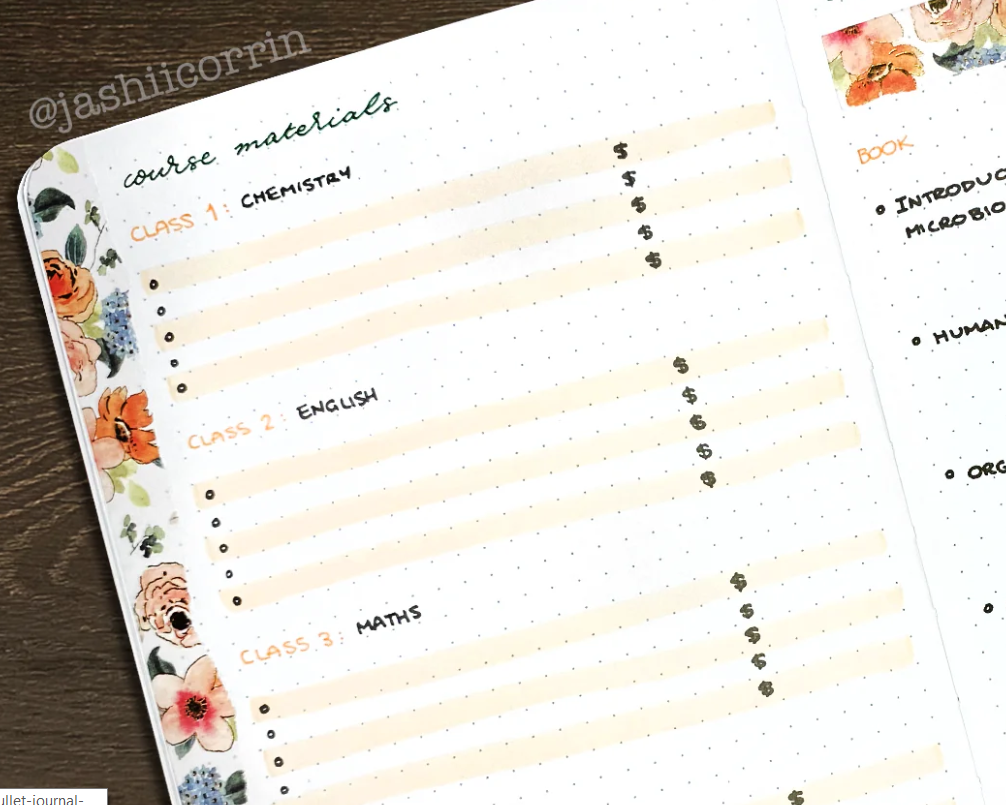 @jashiicorrin
course materials
CLASS 1: CHEMISTRY
$
$
$
$
$
CLASS 2: ENGLISH
$
$
$
$
$
CLASS 3: MATHS
$
$
$
$
$
$
BOOK
INTRODUC
MICROBIO
HUMAN
ORG
ullet-journal-